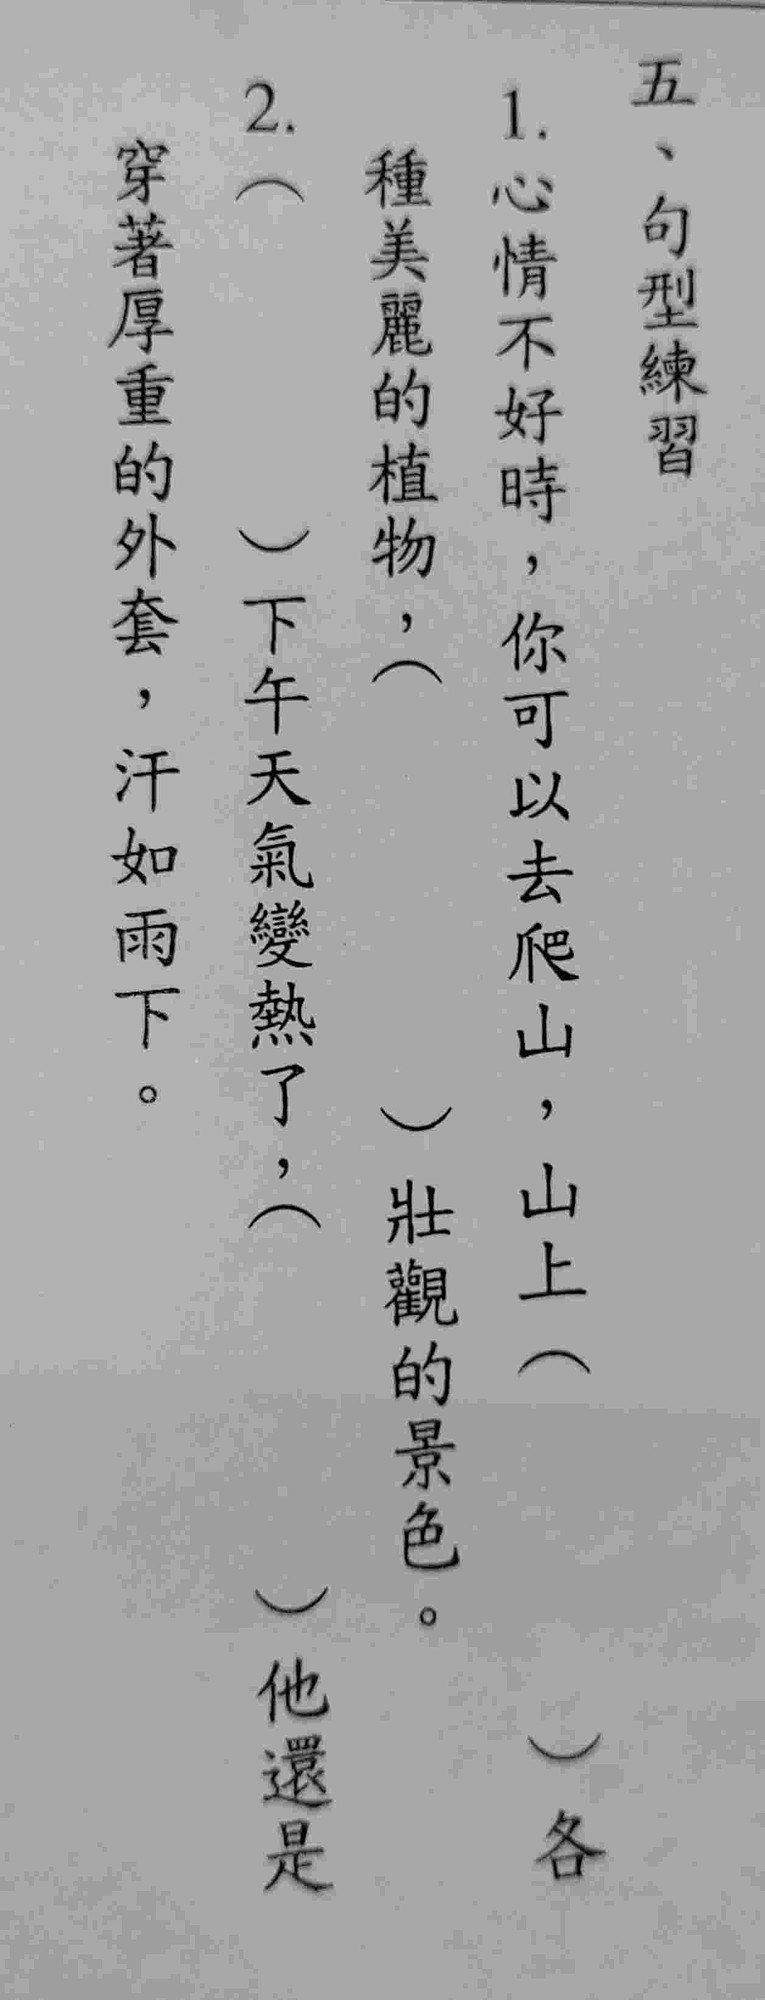 五、句型練習
1.心情不好時，你可以去爬山，山上（　　　　）各
種美麗的植物，（　　　　）壯觀的景色。
2.（　　　　）下午天氣變熱了，（　　　　）他還是
穿著厚重的外套，汗如雨下。